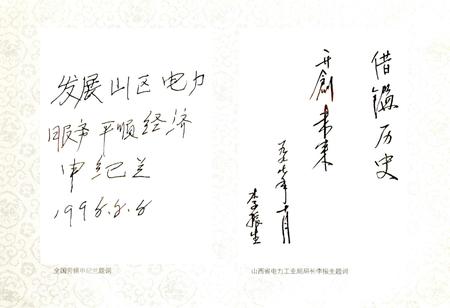 发展山区电力
服务平顺经济
申纪兰
1998.8.8
全国劳模申纪兰题词
借鑑历史
开創未来
一九九八年十月
李振生
山西省电力工业局局长李振生题词